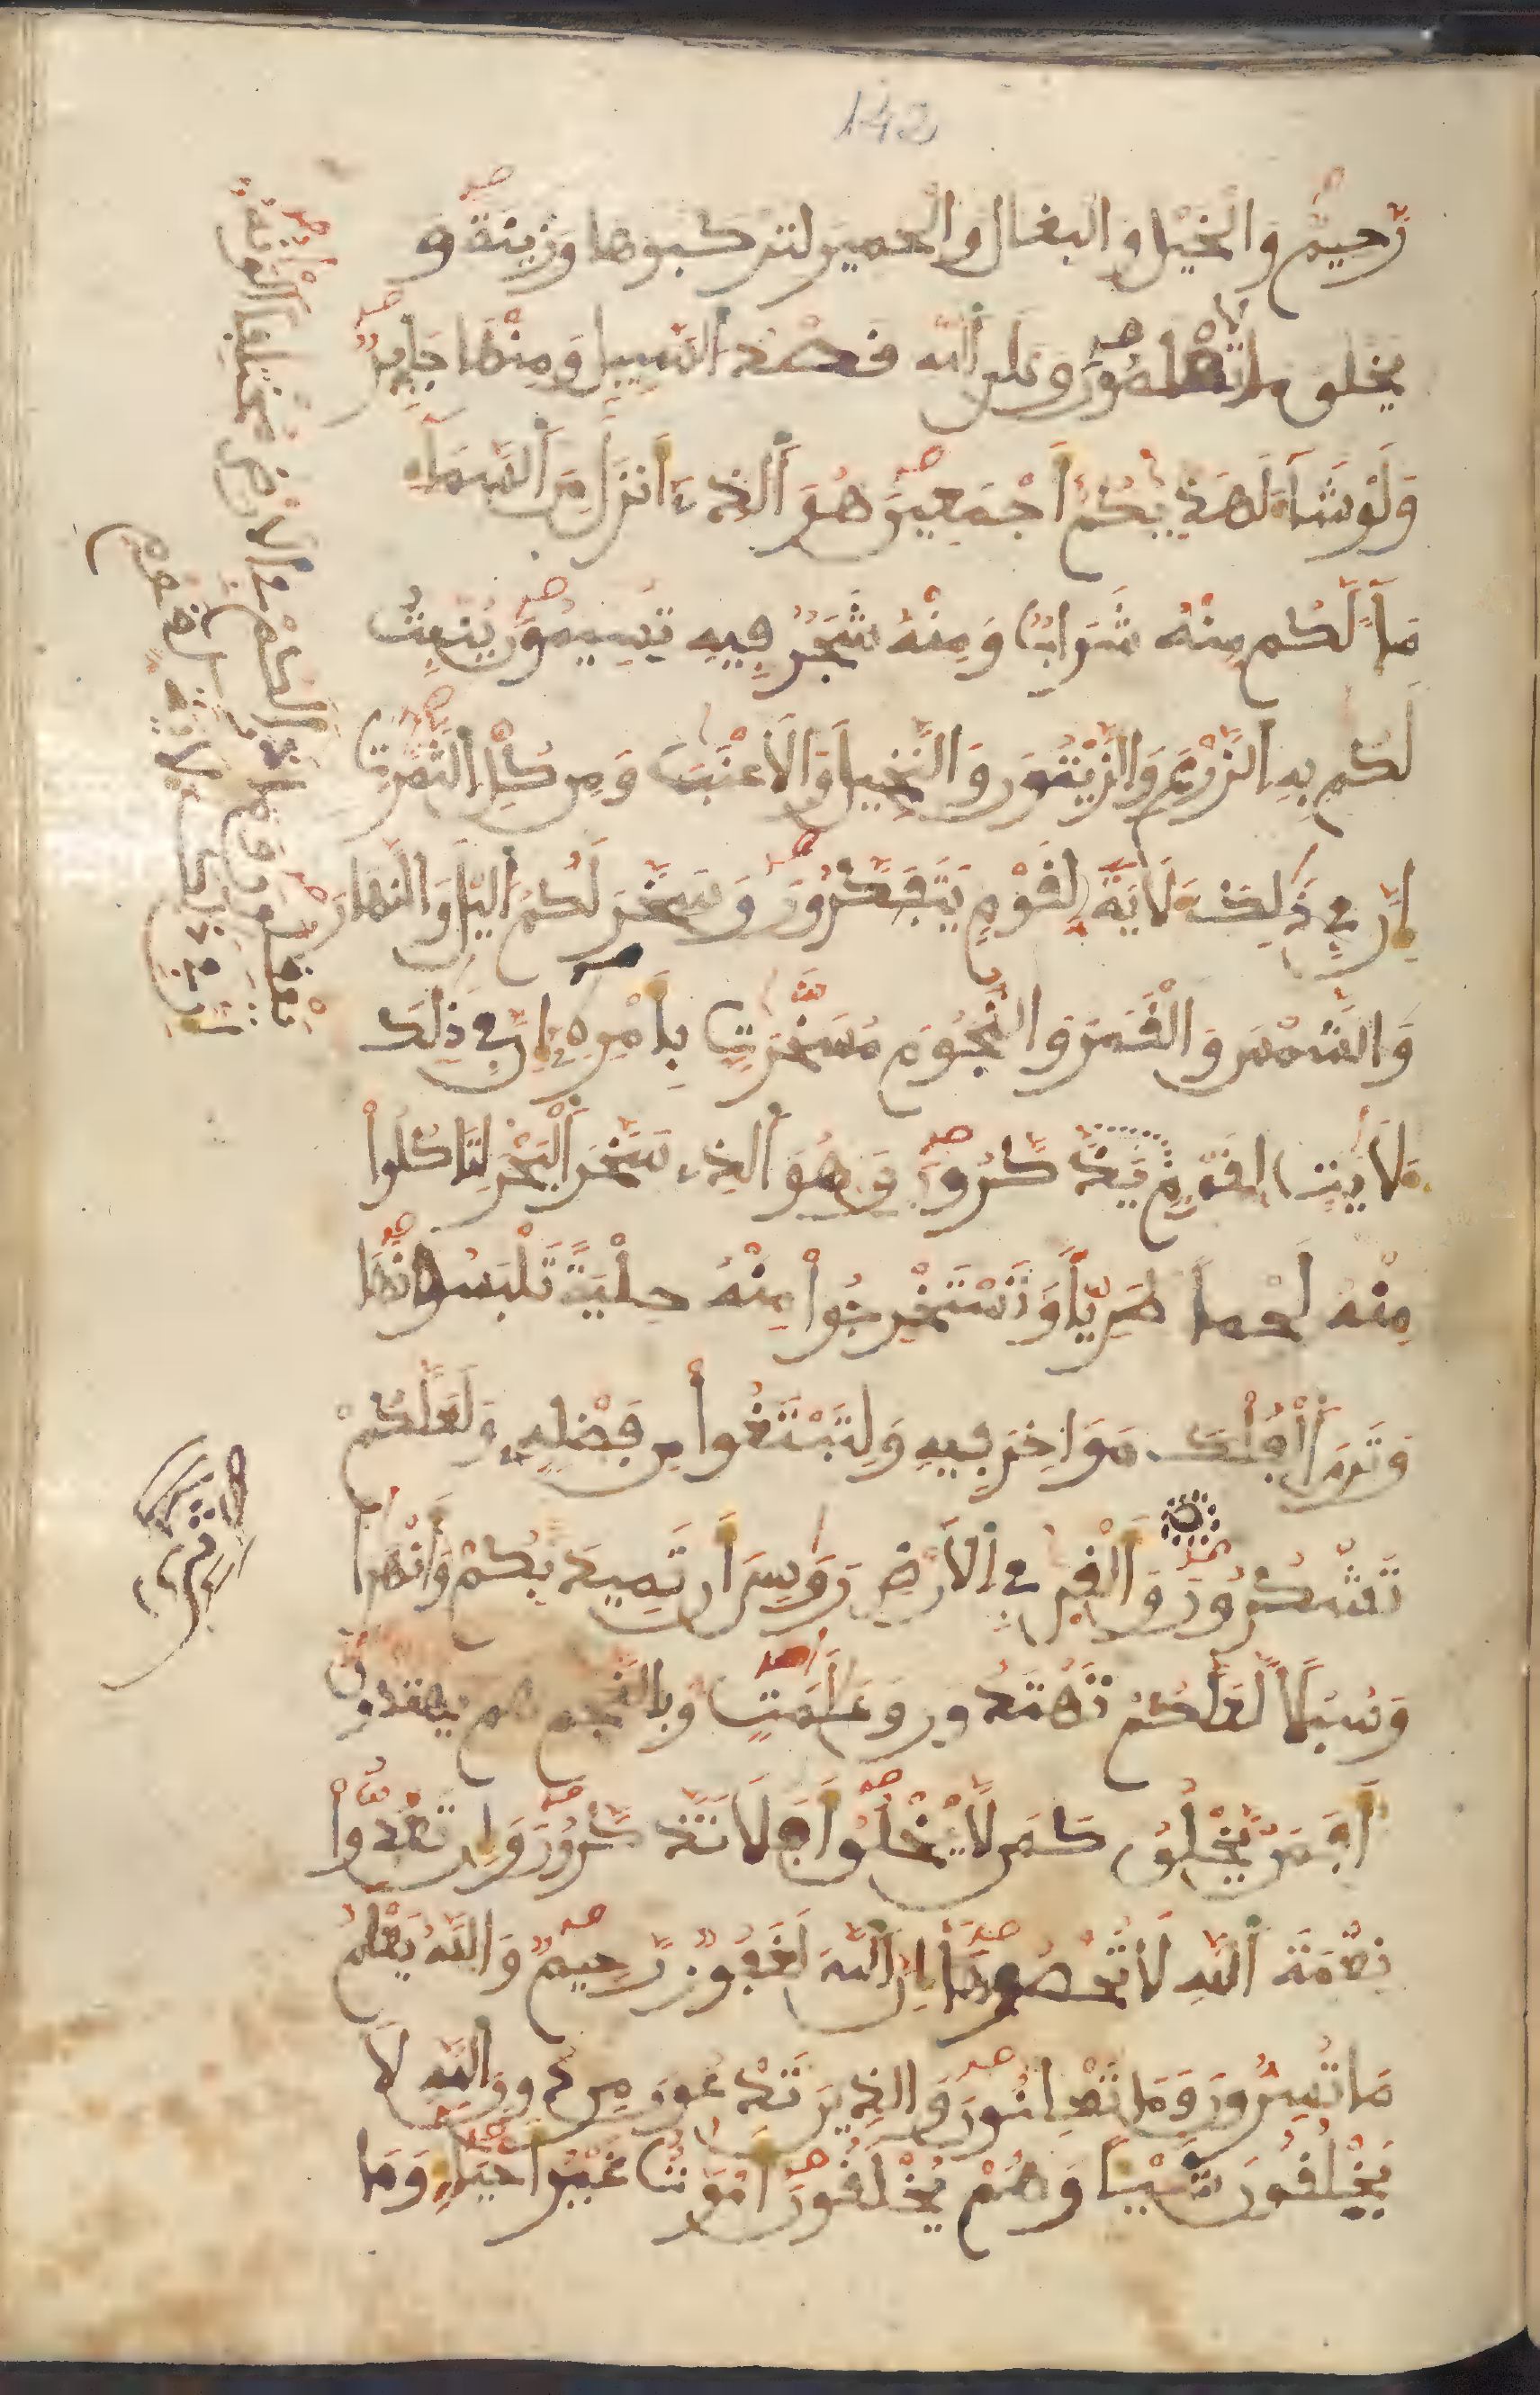 142
رَّحِيمٌ وَالْخَيْل والبغال والحمير لتركبوها وزينة و
يخلق ما لا تعلمون وعلى الله قصد السبيل ومنها جاير
ولو شاء لهديكم أجمعين هو الذي أنزل من السماء
ماء لكم منه شراب ومنه شجر فيه تسيمون ينبت
لكم به الزرع والزيتون والنخيل والاعنب ومن كل الثمرت
إن في ذلك لأية لقوم يتفكرون وسخر لكم اليل والنهار
والشمس والقمر والنجوم مسخرت بأمره إن في ذلك
لأيت لقوم يذكرون وهو الذي سخر البحر لتاكلوا
منه لحما طريا وتستخرجوا منه حلية تلبسونها
وترى الفلك مواخر فيه ولتبتغوا من فضله ولعلكم
تشكرون وألقى في الأرض روسي أن تميد بكم وأنهرا
وسبلا لعلكم تهتدون وعلمت وبالنجم هم يهتدون
أفمن يخلق كمن لا يخلق أفلا تذكرون وإن تعدوا
نعمة الله لا تحصوها إن الله لغفور رحيم والله يعلم
ما تسرون وما تعلنون والذين تدعون من دون الله لا
يخلقون شيئا وهم يخلقون أموت غير أحياء وما
يعقلون وما ذرا لكم في الارض مختلفا الونه
ان في ذلك لاية لقوم